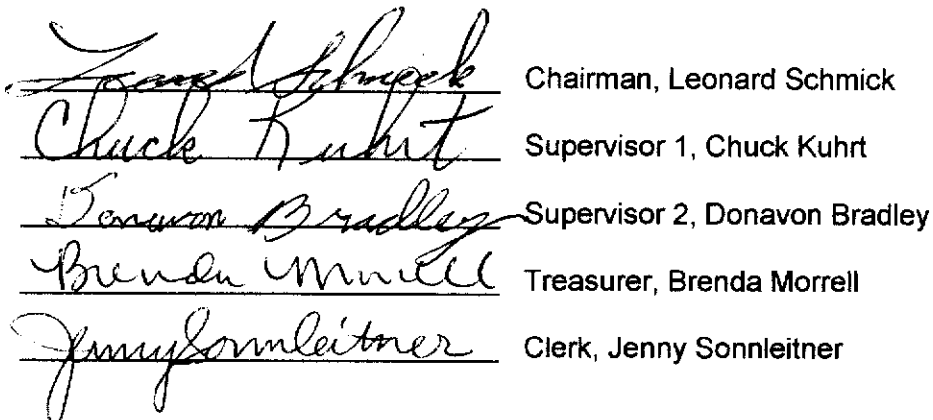 Leonard Schmick Chairman, Leonard Schmick
Chuck Kuhrt Supervisor 1, Chuck Kuhrt
Donavon Bradley Supervisor 2, Donavon Bradley
Brenda Morrell Treasurer, Brenda Morrell
Jenny Sonnleitner Clerk, Jenny Sonnleitner